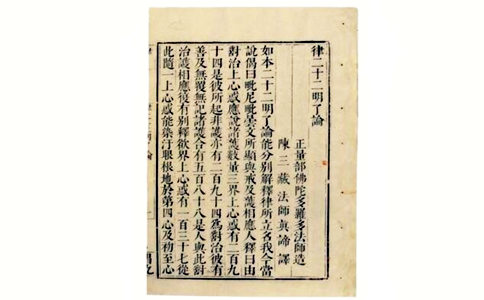 律二十二明了論
正量部佛陀多羅多法師造
陳三藏法師眞諦譯
如本二十二明了論能分別解釋律所立名我今當
說偈曰毗尼毗曇文所顯與戒及護相應人釋曰由
對治上心惑應說諸護數量三界上心惑有二百九
十四是彼所起非護亦有二百九十四爲對治彼有
善及無覆無記諸護合有五百八十八是人與此對
治護相應復有別釋欲界上心惑有一百三十七從
此隨一上心惑能染汙眼根地於第四心及初至心